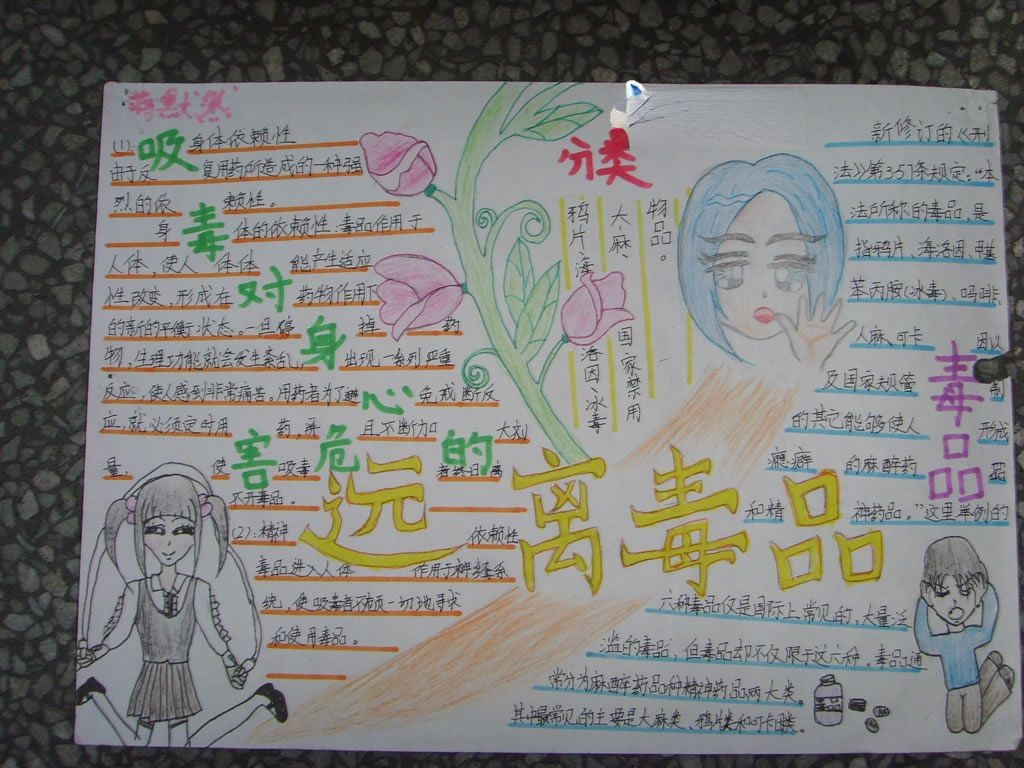 吸毒对身心的危害
(1):身体依赖性
由于反复用药所造成的一种强
烈的依赖性。
身体的依赖性:毒品作用于
人体,使人体体能产生适应
性改变,形成在药物作用下
的新的平衡状态。一旦停掉药
物,生理功能就会发生紊乱,出现一系列严重
反应,使人感到非常痛苦。用药者为了避免戒断反
应,就必须定时用药,并且不断加大剂
量,使吸毒者终日离
不开毒品。
(2):精神依赖性
毒品进入人体作用于神经系
统,使吸毒者不顾一切地寻求
和使用毒品。
分类
鸦片、海洛因、冰毒
大麻、国家禁用
物品。
远离毒品
毒品
新修订的《刑
法》第357条规定:“本
法所称的毒品,是
指鸦片、海洛因、甲基
苯丙胺(冰毒)、吗啡、
大麻、可卡因以
及国家规管制
的其它能够使人形成
瘾癖的麻醉药品
和精神药品。”这里举例的
六种毒品仅是国际上常见的,大量泛
滥的毒品,但毒品却不仅限于这六种。毒品通
常分为麻醉药品和精神药品两大类。
其中最常见的主要是大麻类、鸦片类和可卡因类。